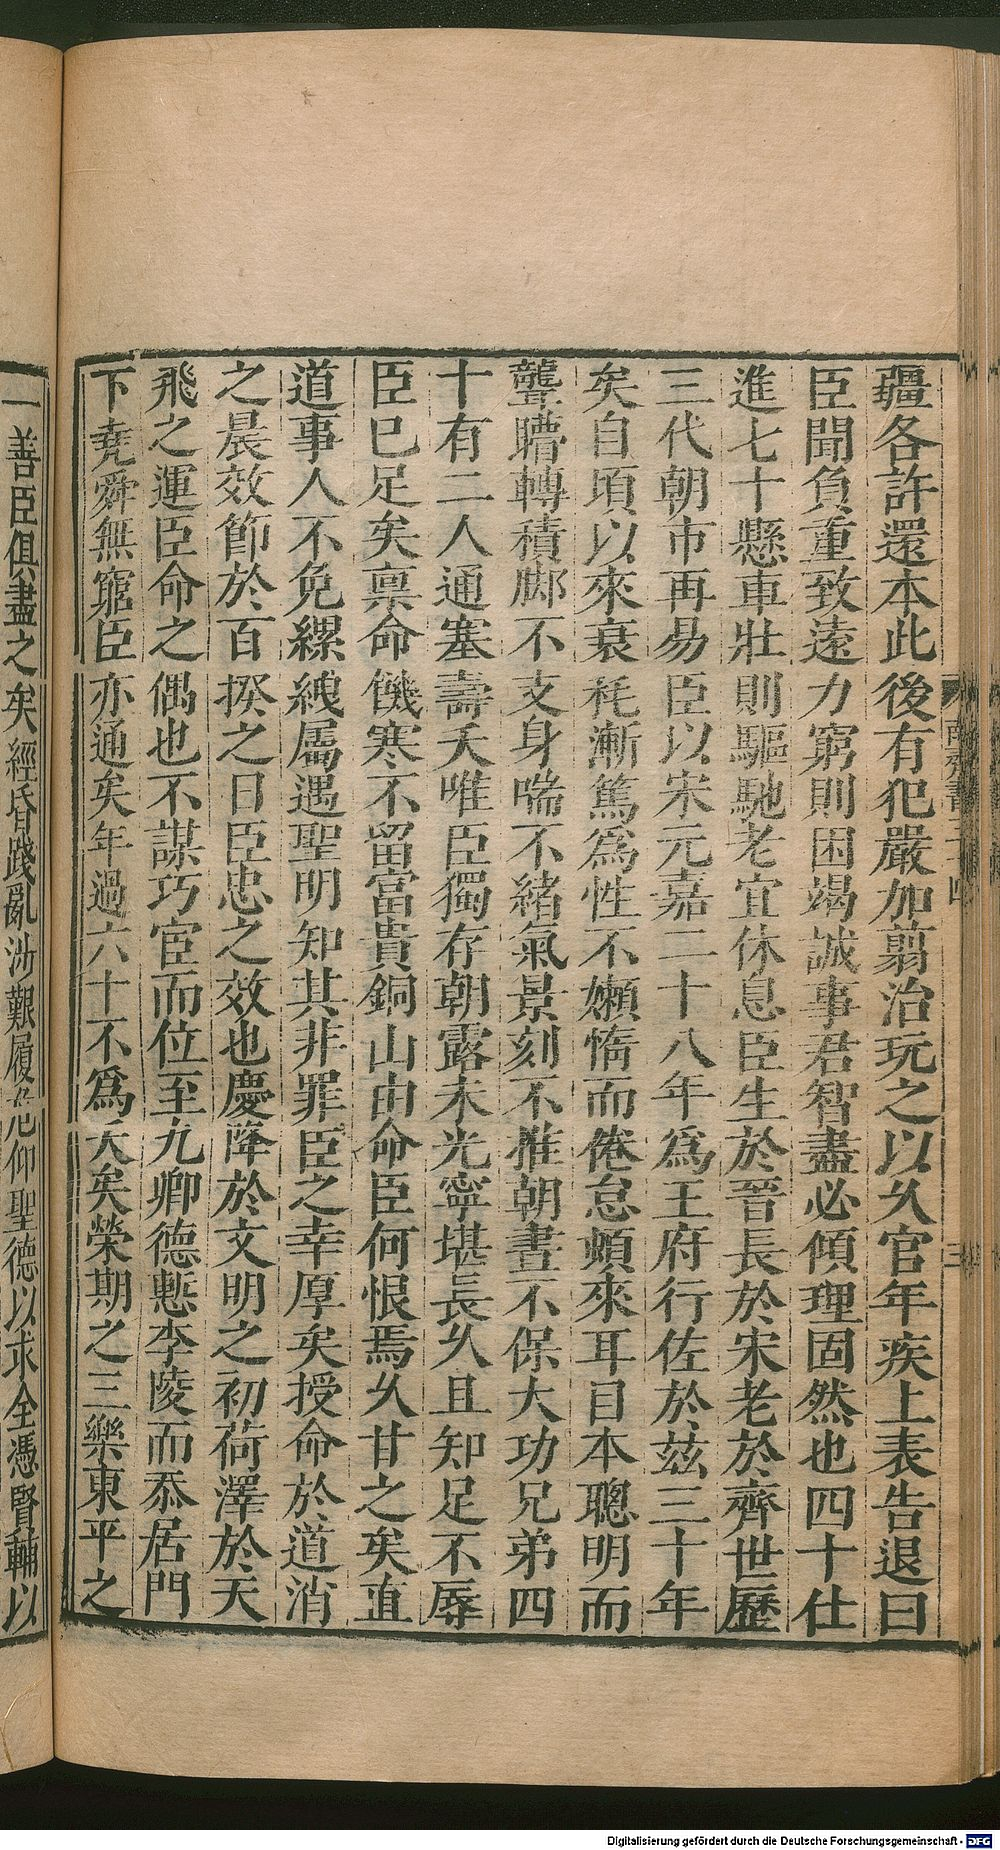 疆各許還本此後有犯嚴加翦治玩之以久官年疾上表告退曰
臣聞負重致遠力窮則困竭誠事君智盡必傾理固然也四十仕
進七十懸車壯則驅馳老宜休息臣生於晉長於宋老於齊世歷
三代朝市再易臣以宋元嘉二十八年為王府行佐於茲三十年
矣自頃以來衰耗漸篤為性不嬾惰而倦怠頓來耳目本聰明而
聾瞶轉積腳不支身喘不緒氣景刻不推朝晝不保大功兄弟四
十有二人通塞壽夭唯臣獨存朝露未光寧堪長久且知足不辱
臣已足矣稟命饑寒不留富貴銅山由命臣何恨焉久甘之矣直
道事人不免縲絏屬遇聖明知其非罪臣之幸厚矣授命於道消
之晨效節於百揆之日臣忠之效也慶降於文明之初荷澤於天
飛之運臣命之偶也不謀巧宦而位至九卿德慙李陵而忝居門
下堯舜無窮臣亦通矣年過六十不為夭矣榮期之三樂東平之
一善臣俱盡之矣經昏踐亂涉艱履危仰聖德以求全憑賢輔以
南齊書三十四
三
Digitalisierung gefördert durch die Deutsche Forschungsgemeinschaft - DFG